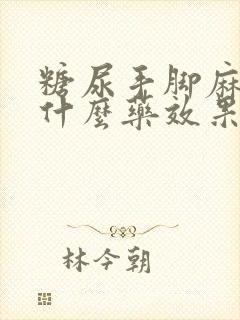 糖尿手脚麻
什麼藥效果
林今朝